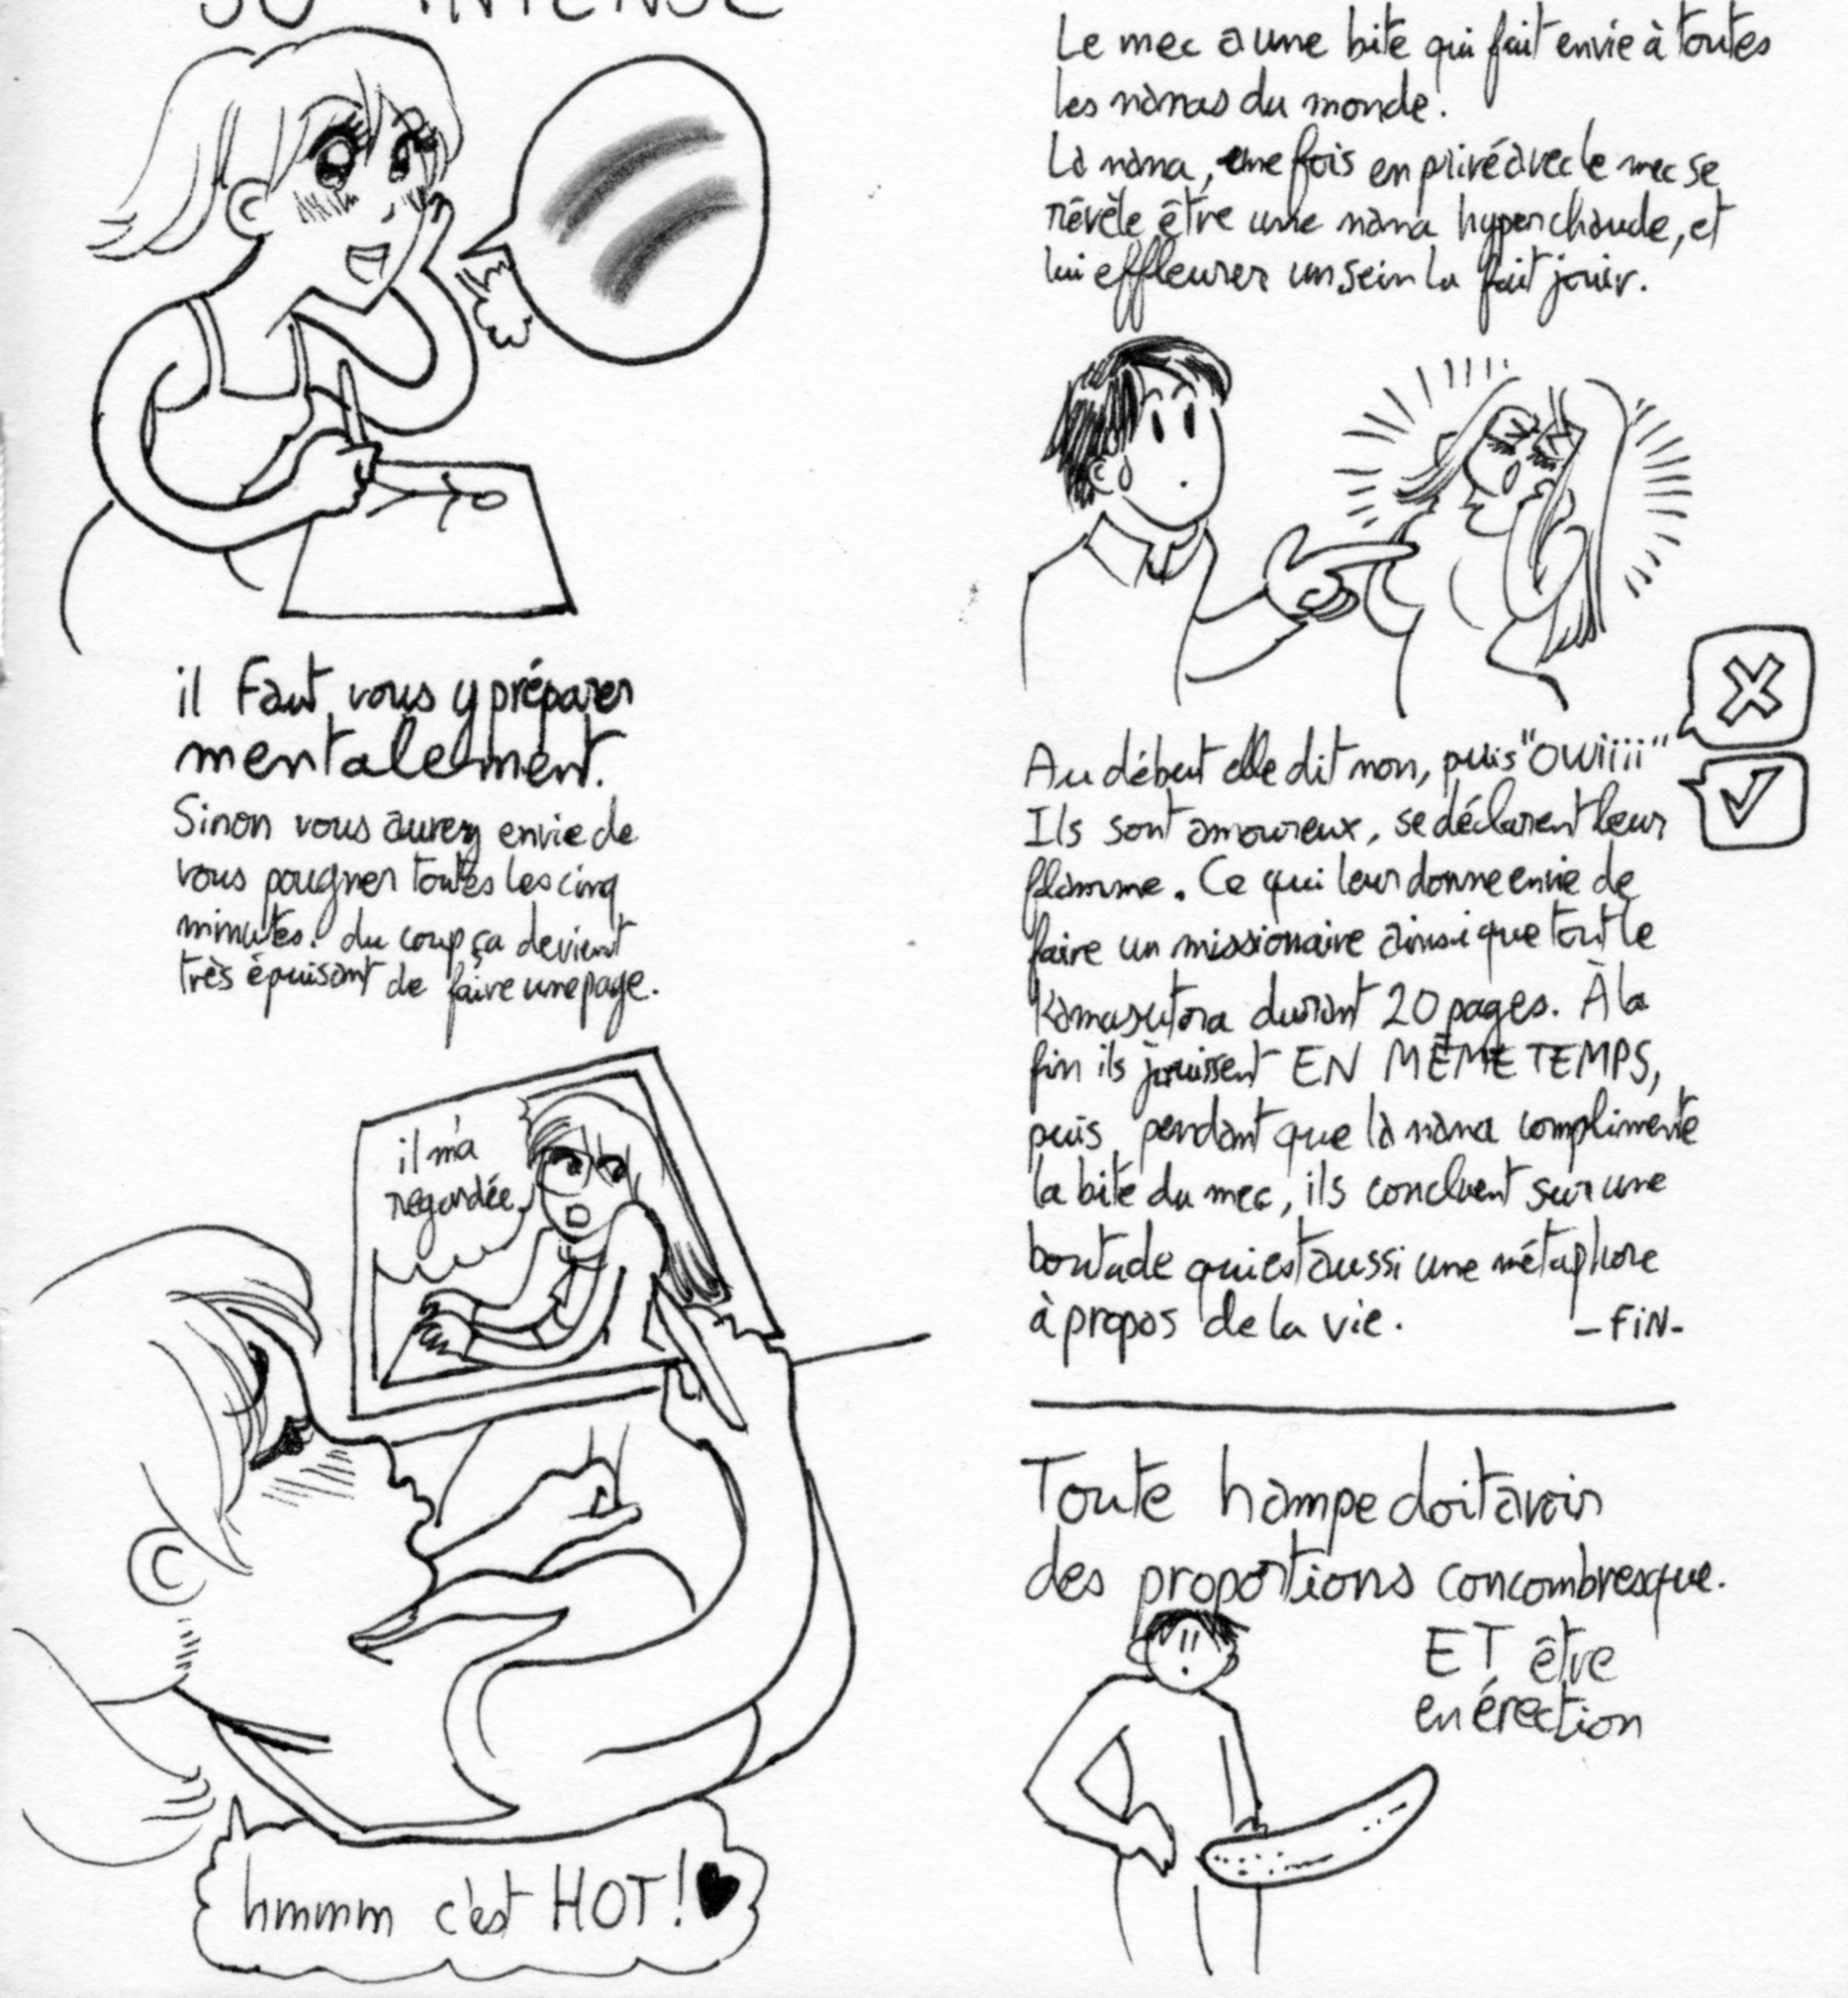 SO INTENSE
il Faut vous y préparer
mentalement.
Sinon vous aurez envie de
vous pougner toutes les cinq
minutes. du coup ça devient
très épuisant de faire une page.
il m'a
regardée.
hmmm c'est HOT!
Le mec a une bite qui fait envie à toutes
les nanas du monde.
La nana, une fois en privé avec le mec se
révèle être une nana hyper chaude, et
lui effleurer un sein la fait jouir.
Au début elle dit non, puis "OWiiii"
Ils sont amoureux, se déclarent leur
flamme. Ce qui leur donne envie de
faire un missionaire ainsi que tout le
Kamasutora durant 20 pages. À la
fin ils jouissent EN MÊME TEMPS,
puis pendant que la nana complimente
la bite du mec, ils concluent sur une
boutade qui est aussi une métaphore
à propos de la vie.
-FiN-
Toute hampe doit avoir
des proportions concombresque.
ET être
en érection